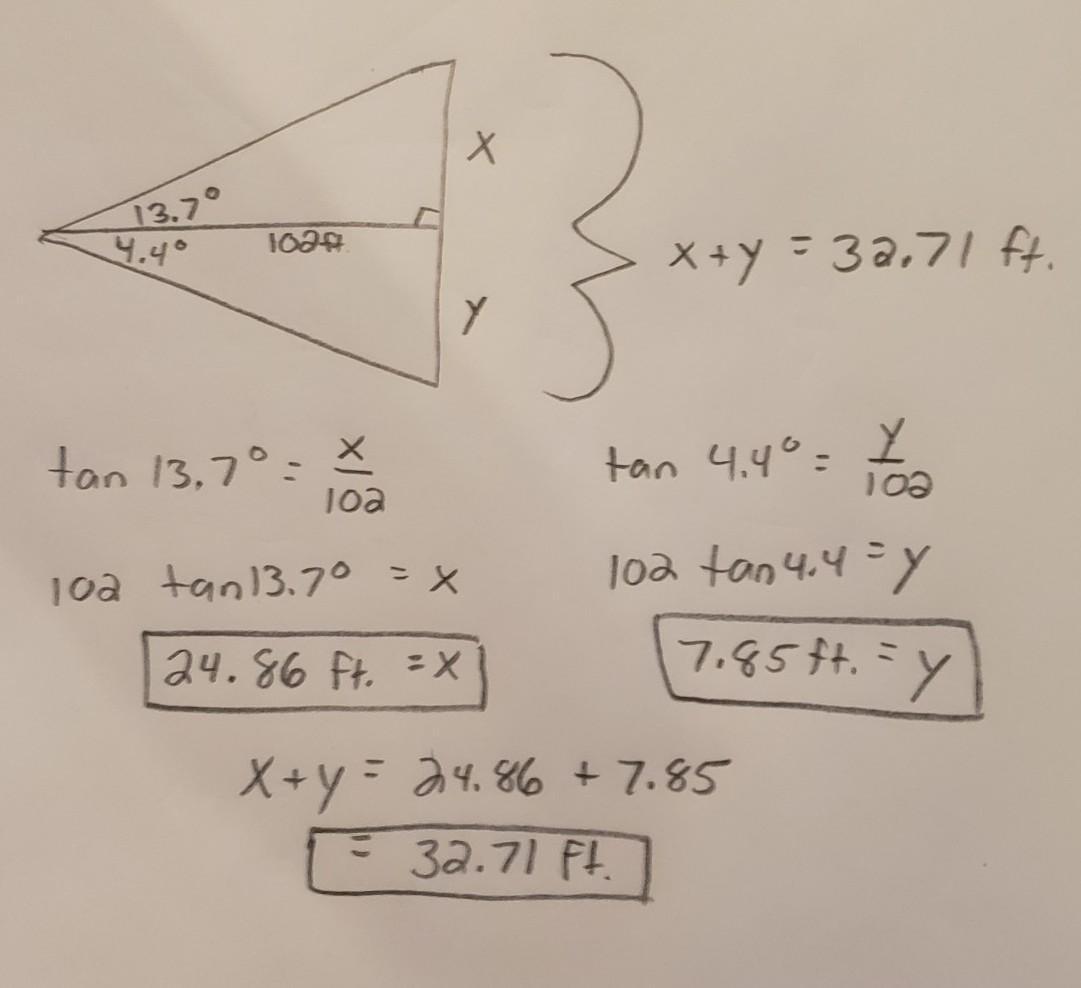 X
13.7°
4.4°
102ft
x+y = 32.71 ft.
y
tan 13.7° = x/102
tan 4.4° = y/102
102 tan13.7° = x
102 tan4.4 = y
24.86 ft. = x
7.85 ft. = y
x+y = 24.86 + 7.85
= 32.71 ft.